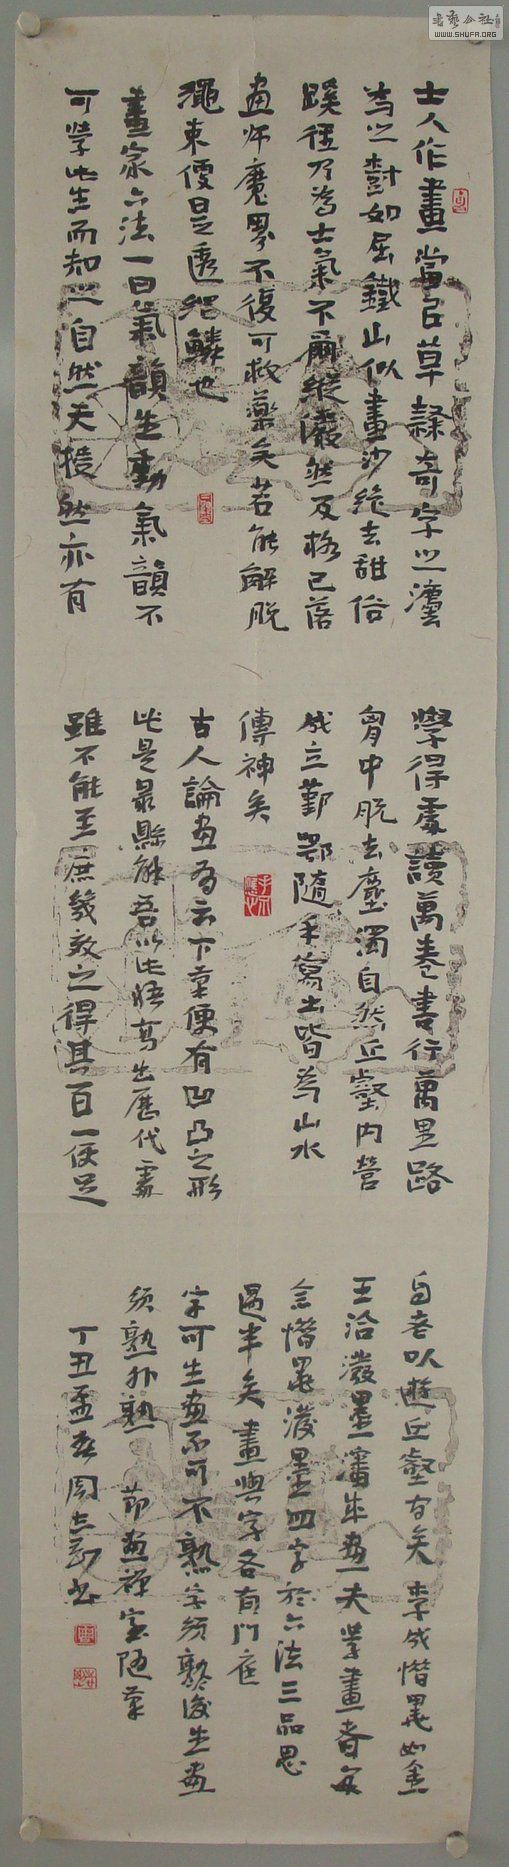 士人作畫當以草隸奇字之法
為之樹如屈鐵山似畫沙絕去甜俗
蹊徑乃為士氣不爾縱儼然及格已落
畫師魔界不復可救藥矣若能解脫
繩束便是透網鱗也
畫家六法一曰氣韻生動氣韻不
可學此生而知之自然天授然亦有
學得處讀萬卷書行萬里路
胸中脫去塵濁自然丘壑內營
成立鄞鄂隨手寫出皆為山水
傳神矣
古人論畫有云下筆便有凹凸之形
此是最懸解吾以此悟高出歷代處
雖不能至庶幾效之得其百一便足
自老以遊丘壑有矣 李成惜墨如金
王洽潑墨瀋成畫夫學畫者每
念惜墨潑墨四字於六法三品思
過半矣 畫與字各有門庭
字可生畫不可不熟字須熟後生畫
須熟外熟 節畫禪室隨筆
丁丑孟春周志剛書
書藝公社
WWW.SHUFA.ORG